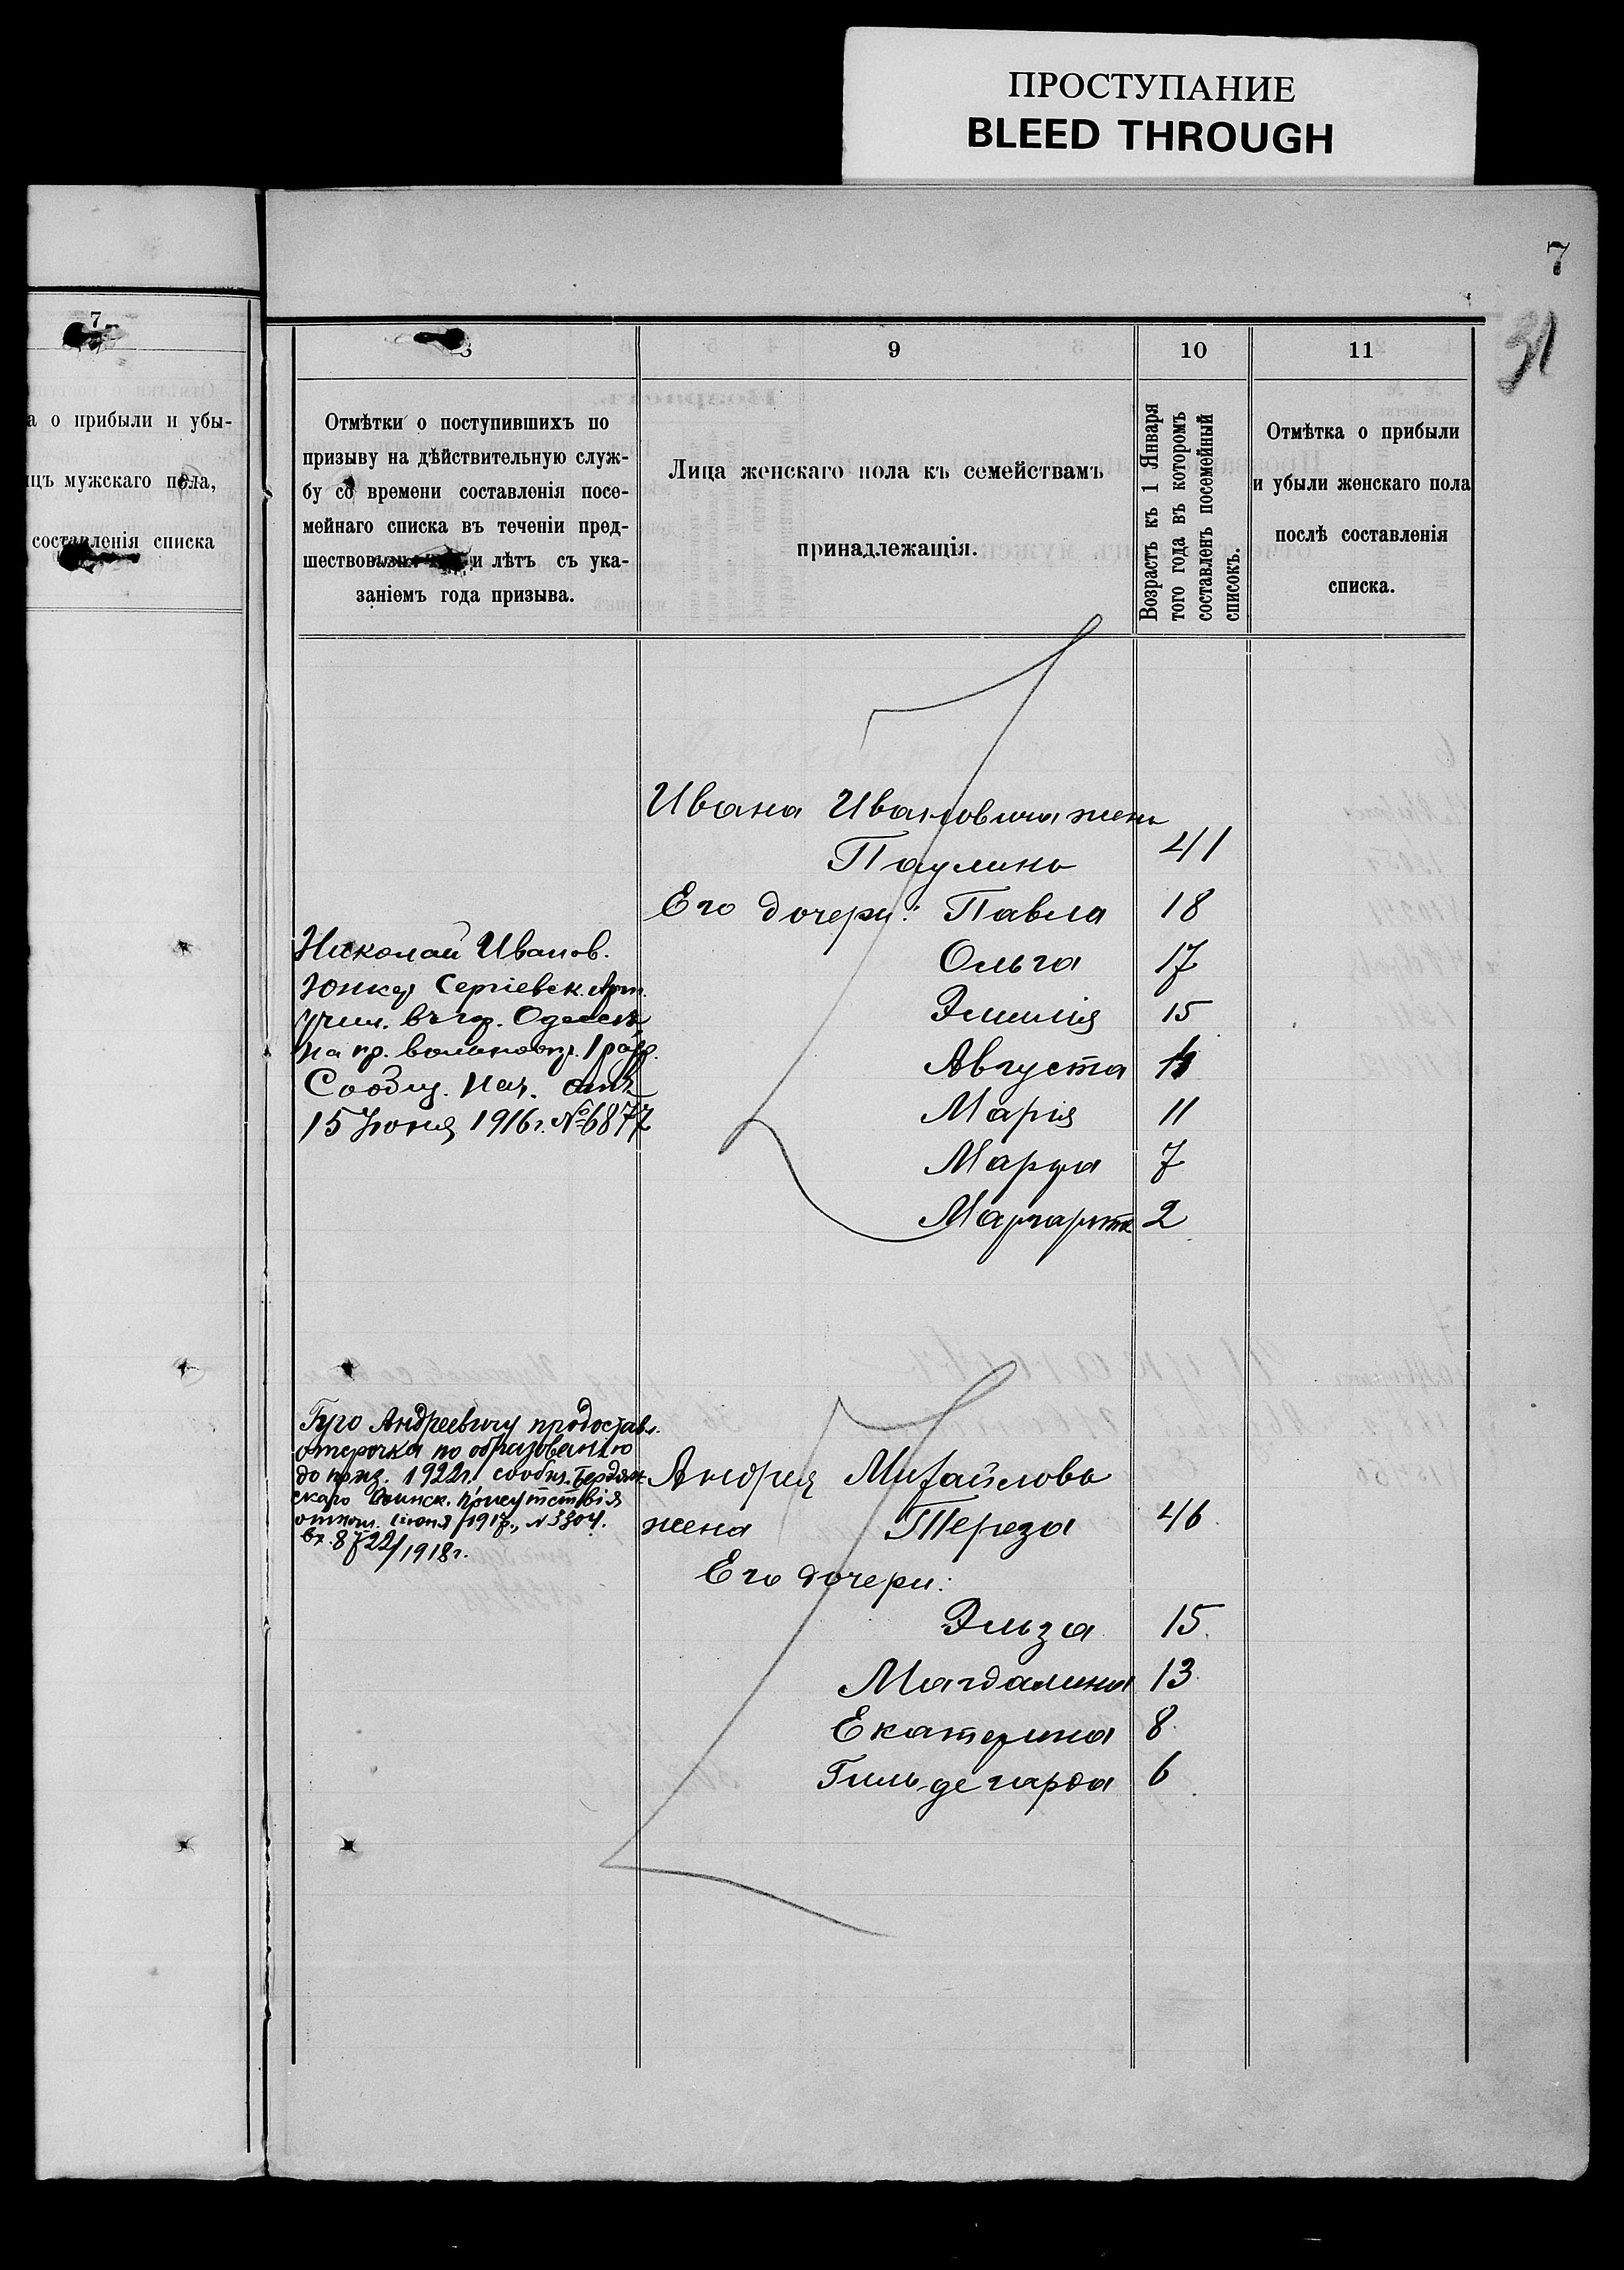 ПРОСТУПАНИЕ
BLEED THROUGH
7
31
7
а о прибыли и убы-
цъ мужскаго пола,
составленія списка
8
Отмѣтки о поступившихъ по
призыву на дѣйствительную служ-
бу со времени составленія посе-
мейнаго списка въ теченіи пред-
и лѣтъ съ ука-
заніемъ года призыва.
9
Лица женскаго пола къ семействамъ
принадлежащія.
10
Возрастъ къ 1 Января
того года въ которомъ
составленъ посемейный
списокъ.
11
Отмѣтка о прибыли
и убыли женскаго пола
послѣ составленія
списка.
Ивана Ивановича жена
Паулина 41
Его дочери: Павла 18
Ольга 17
Эмилія 15
Августа
Марія 11
Марфа 7
Маргарита 2
Николай Иванов.
Юнкер Сергіевск. Арт.
учил. въ гор. Одессѣ,
на пр. вольноопр. 1 разр.
Сообщ. Нач.
15 Іюня 1916 г. № 6877
Гуго Андреевичу предоставл.
отсрочка по образованію
до приз. 1922 г. сообщ. Бердян-
скаго Воинск. Присутствія
іюня 1917 г., № 3304.
вх. 8722/1918 г.
Андрея Михайлова
жена Тереза 46
Его дочери:
Эльза 15
Магдалина 13
Екатерина 8
Гильдегарда 6